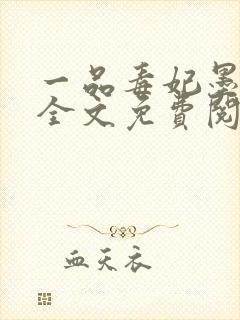 一品毒妃墨
全文免费阅
血天衣